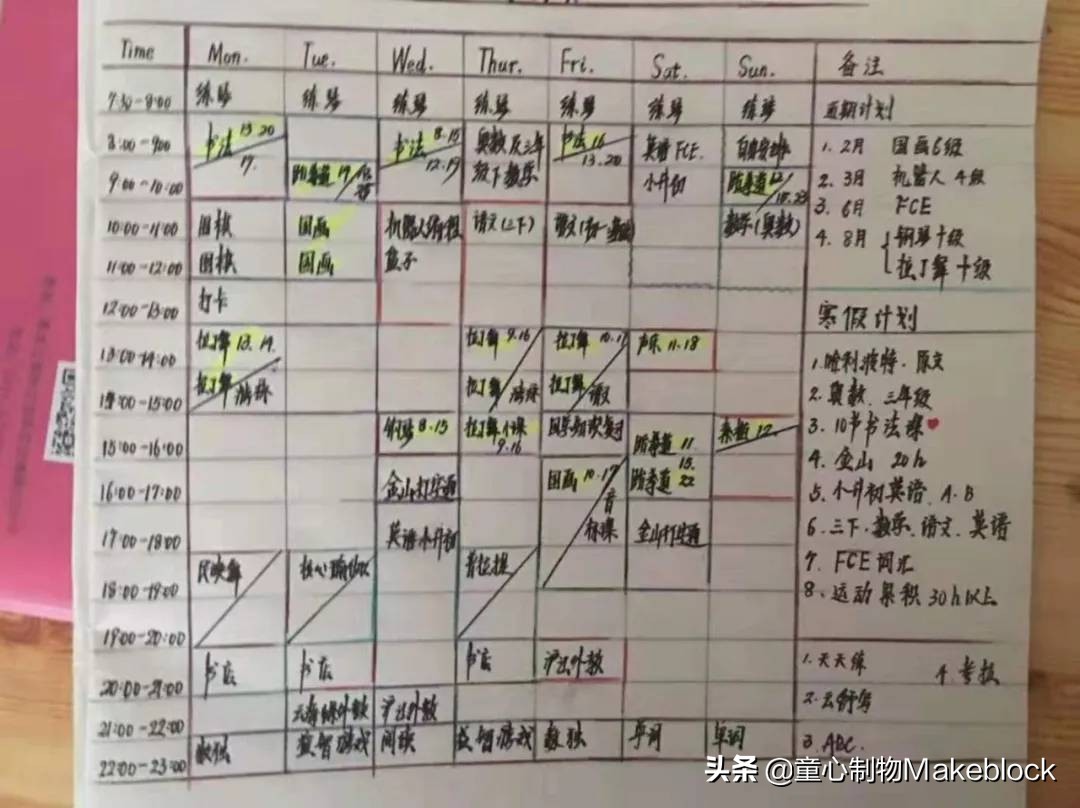 Time Mon. Tue. Wed. Thur. Fri. Sat. Sun. 备注
7:30-8:00 练琴 练琴 练琴 练琴 练琴 练琴 练琴 近期计划
8:00-9:00 书法 13.20 17. 书法 8.15 12.19 奥数及三年级下数学 书法 16 13.20 英语 FCE. 自由安排 1. 2月 国画6级
9:00-10:00 跆拳道 19 小升初 跆拳道 12 2. 3月 机器人4级
3. 6月 FCE
10:00-11:00 围棋 国画 机器人编程 语文(三下) 语文 数学(奥数) 4. 8月 钢琴十级
11:00-12:00 围棋 国画 盒子 拉丁舞十级
12:00-13:00 打卡 寒假计划
13:00-14:00 拉丁舞 13.14. 拉丁舞 9.16 拉丁舞 10.1 声乐 11.18 1.哈利波特·原文
14:00-15:00 拉丁舞 拉丁舞 拉丁舞 语文 2. 奥数、三年级
15:00-16:00 钢琴 8.15 拉丁舞小课 9.16 国学知识复习 跆拳道 11. 素描 12. 3. 10节书法课
4. 金山 20h
16:00-17:00 金山打字通 国画 10.17 跆拳道 15. 22 5. 小升初英语. A.B
17:00-18:00 英语小升初 金山打字通 6. 三下·数学、语文、英语
7. FCE 词汇
18:00-19:00 民族舞 普拉提 8、运动累积30h以上
19:00-20:00
20:00-21:00 书店 书店 书店 沪江外教 1. 天天练
2.
21:00-22:00 外教 沪江外教
22:00-23:00 数独 益智游戏 阅读 益智游戏 数独 单词 单词 3. ABC.
头条 @童心制物Makeblock